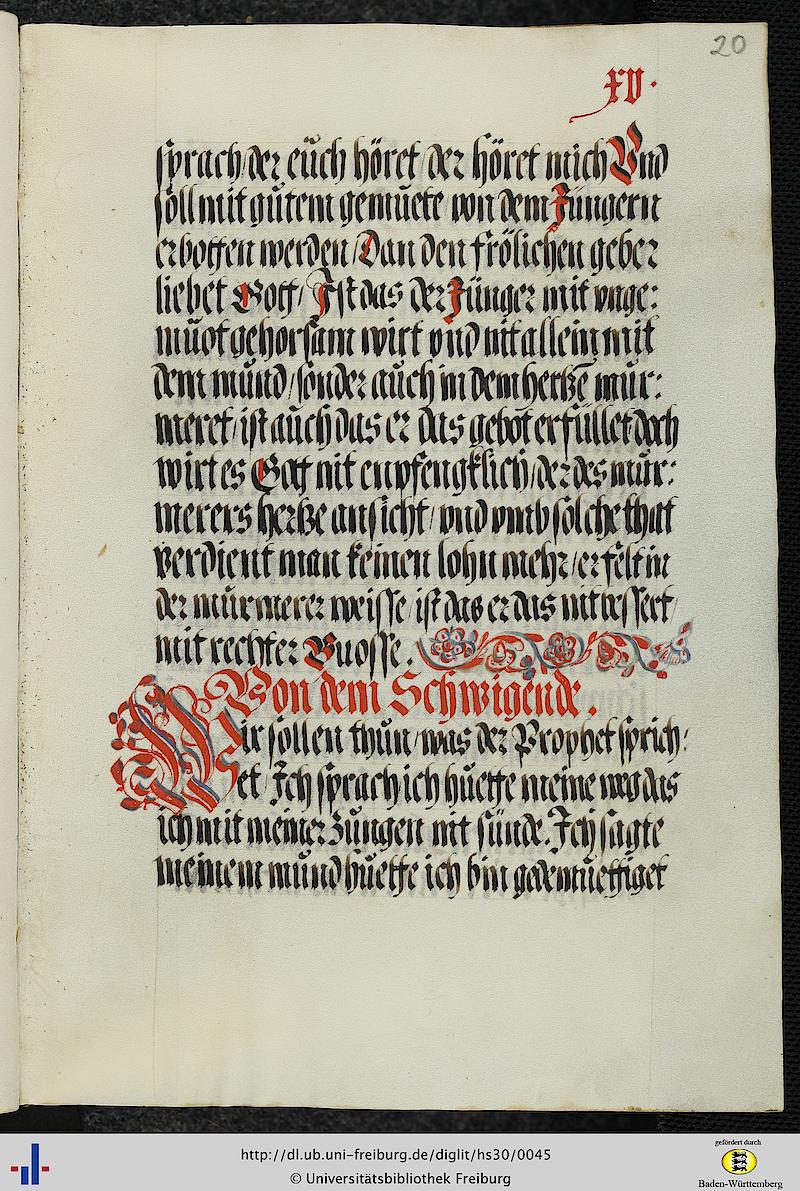 20
xv.
sprach/der euch höret/der höret mich Vnd
soll mit gutem gemuete von dem Jungern
erbotten werden/Dan den frölichen geber
liebet Gott/Ist das der Jünger mit vnge:
muot gehorsam wirt vnd nit allein mit
dem mund/sonder auch in dem hertzē mur:
meret/ist auch das er das gebot erfüllet doch
wirt es Gott nit enpfengklich/der des mur:
merers hertze ansicht/vnd vmb solche that
verdient man keinen lohn mehr/er felt in
der murmerer weisse/ist das er das nit bessert/
mit rechter Buosse.
Von dem Schwigende.
Wir sollen thun/was der Prophet sprich:
et/Ich sprach ich huette meine weg das
ich mit meiner Zungen nit sünde. Ich sagte
meinem mund huette ich bin gedemuettiget
http://dl.ub.uni-freiburg.de/diglit/hs30/0045
© Universitätsbibliothek Freiburg
gefördert durch
Baden-Württemberg